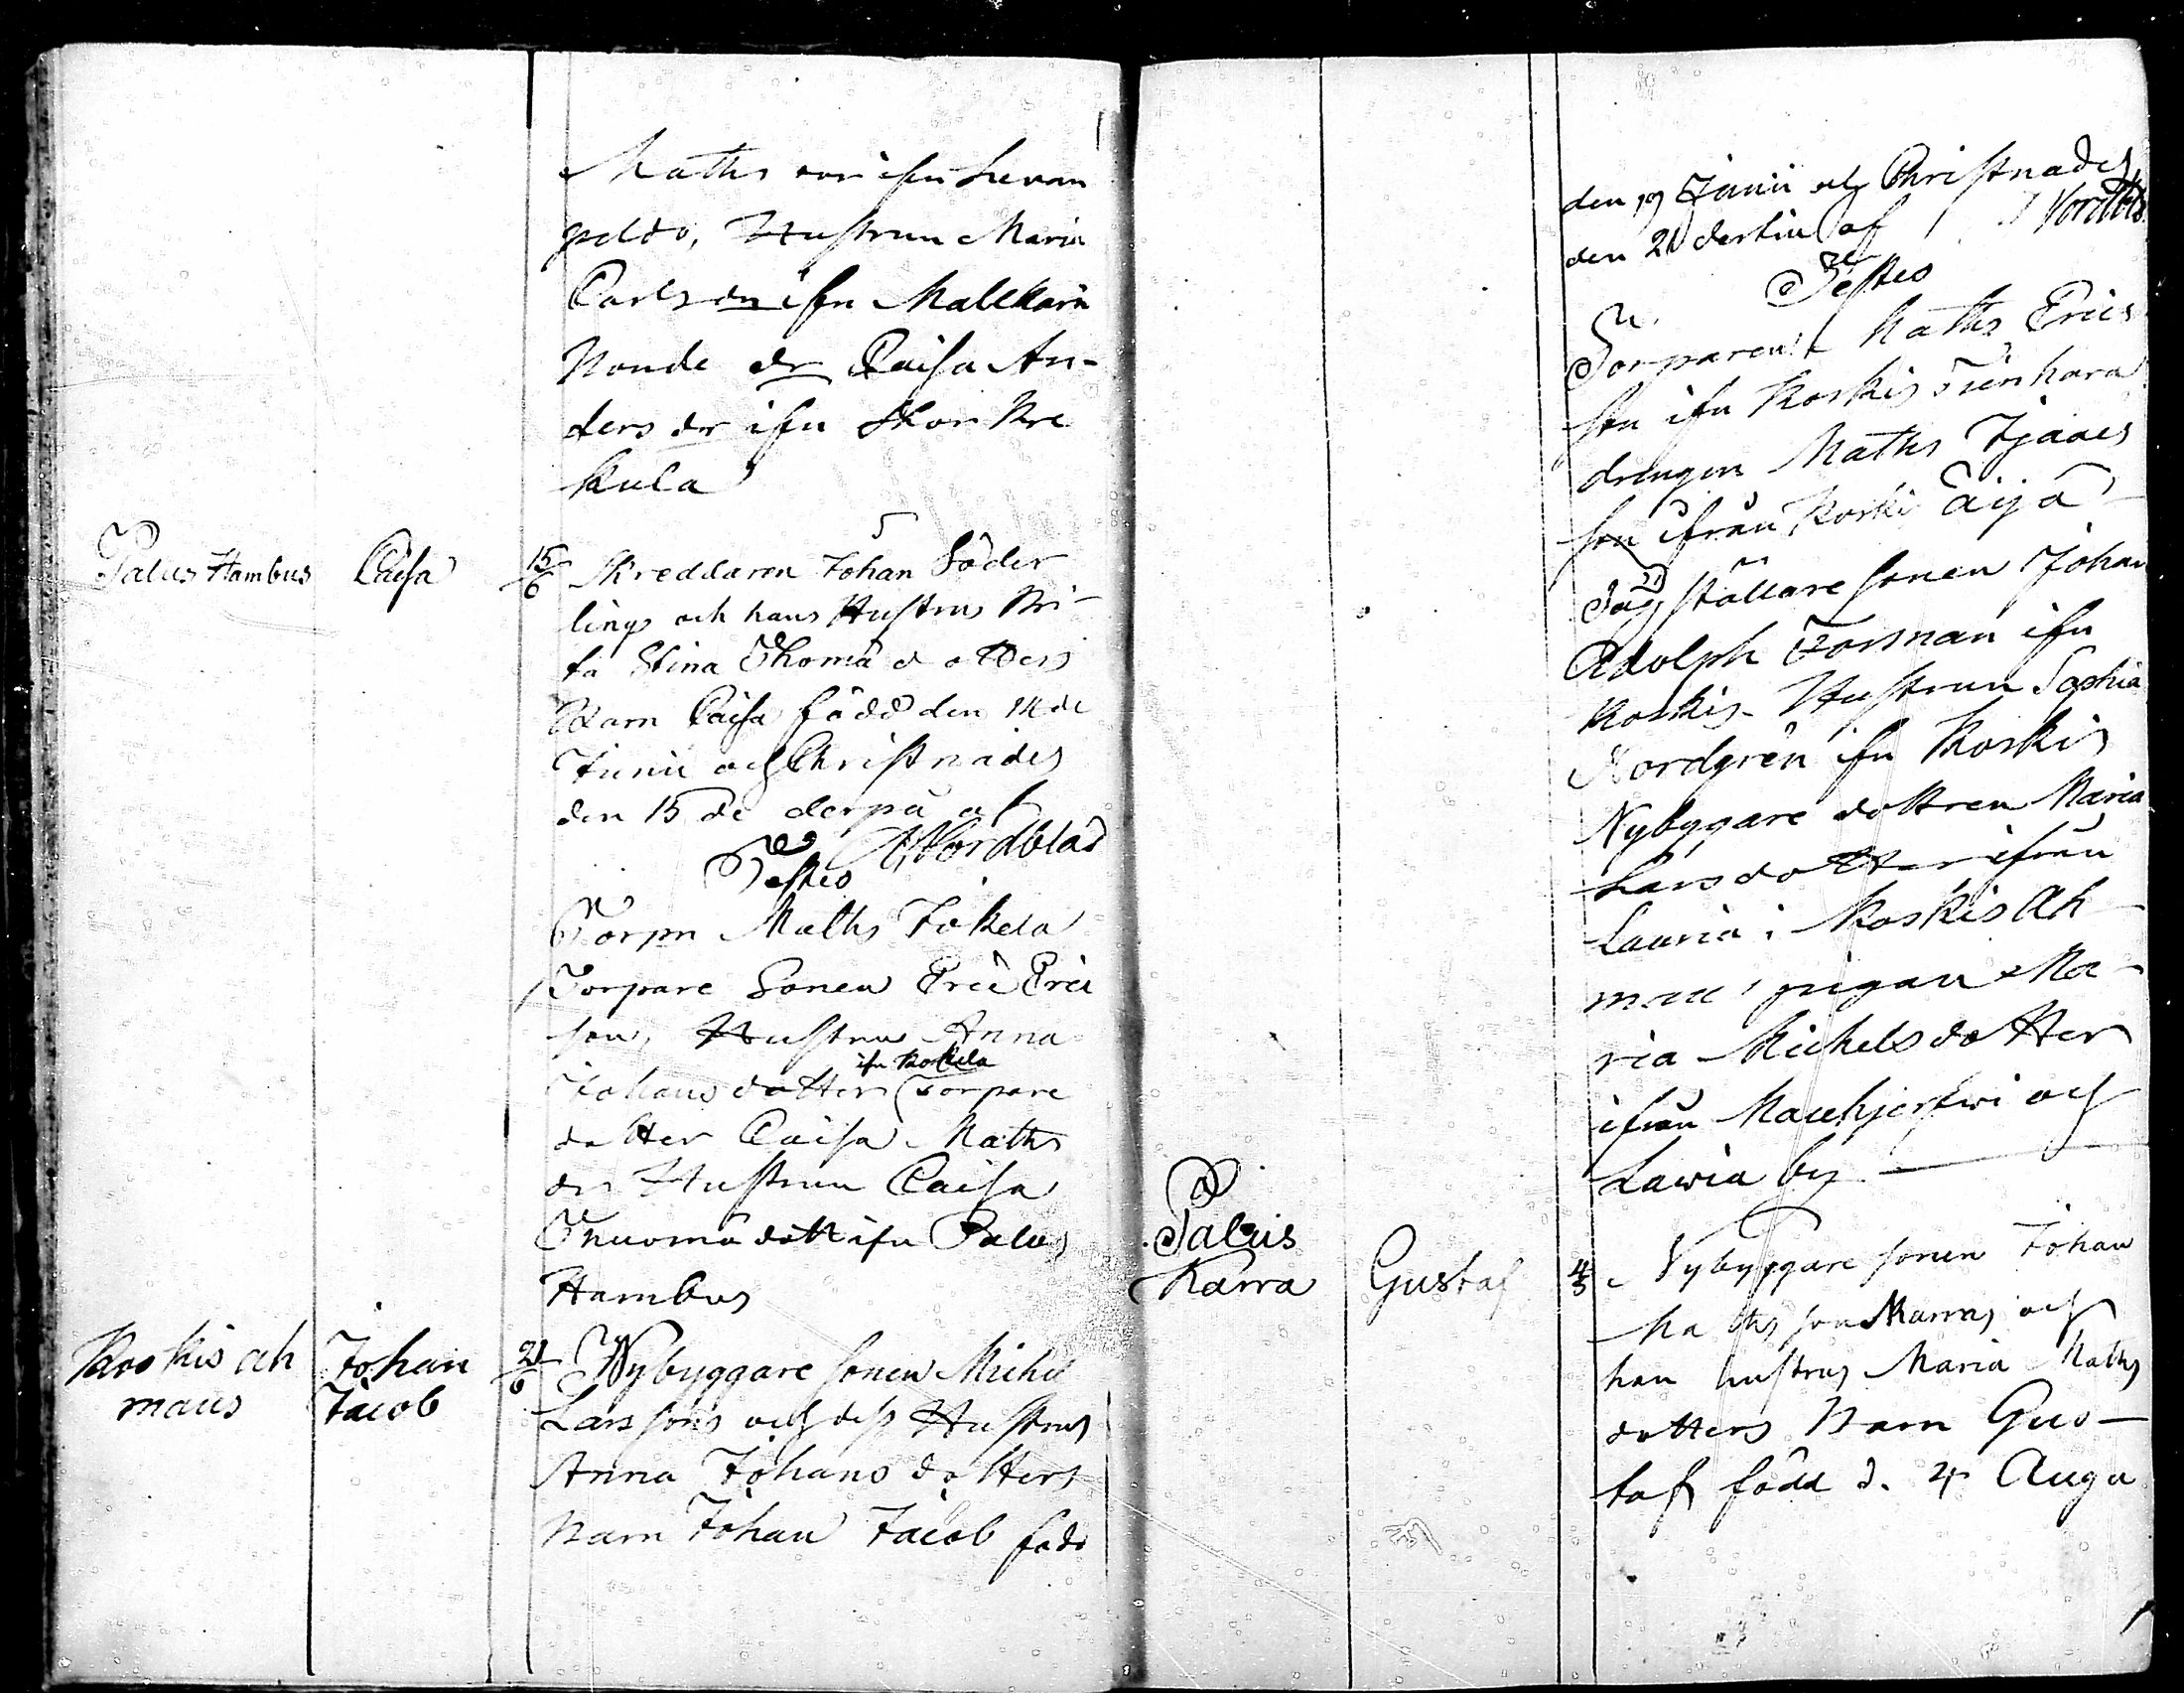 Maths son ifrn Levan
peldo, Hustrun Maria
Carls dr ifrn Mallkarin
Nonde dr Caisa An-
ders dr ifrn Skor Kre
kula
Palus Hambus Caisa 15/6 Skreddaren Johan Söder
lings och hans Hustrus Bri-
ta Stina Thoma dotters
Barn Caisa född den 14de
Junii och Christnades
den 15de derpå af
Nordblad
Testes
Torpn Maths Jokela
Torpare Sonen Eric Eric
son, Hustrun Anna
ifrn Kokela
Johans dotter Torpare
dotter Caisa Maths
dr Hustrun Caisa
Thuoma dott ifrn Palus
Hambus
Koskis ah Johan 21/6 Nybyggare sonen Michel
maus Jacob Larssons och dess Hustrus
Anna Johans dotters
Barn Johan Jacob född
den 19 Junii och Christnades
den 21 dertill af Nordbld.
Testes
Torparen Maths Erics
son ifrn Koskis Tienhara
drengen Maths
son ifrån Koski Äijä
ställare sonen Johan
Adolph Forsman ifrn
Koskis Hustrun Sophia
Nordgren ifrn Koskis
Nybyggare dottren Maria
Larsdotter ifrån
Lauria i Koskis Ah
maus pigan Ma-
ria Michelsdotter
ifrån Mauhjerfwi och
Lawia by
Paluis
Karra Gustaf 4/8 Nybyggare sonen Johan
Maths son Karras och
han hustrus Maria Maths
dotters Barn Gus-
taf född d. 4 Augu